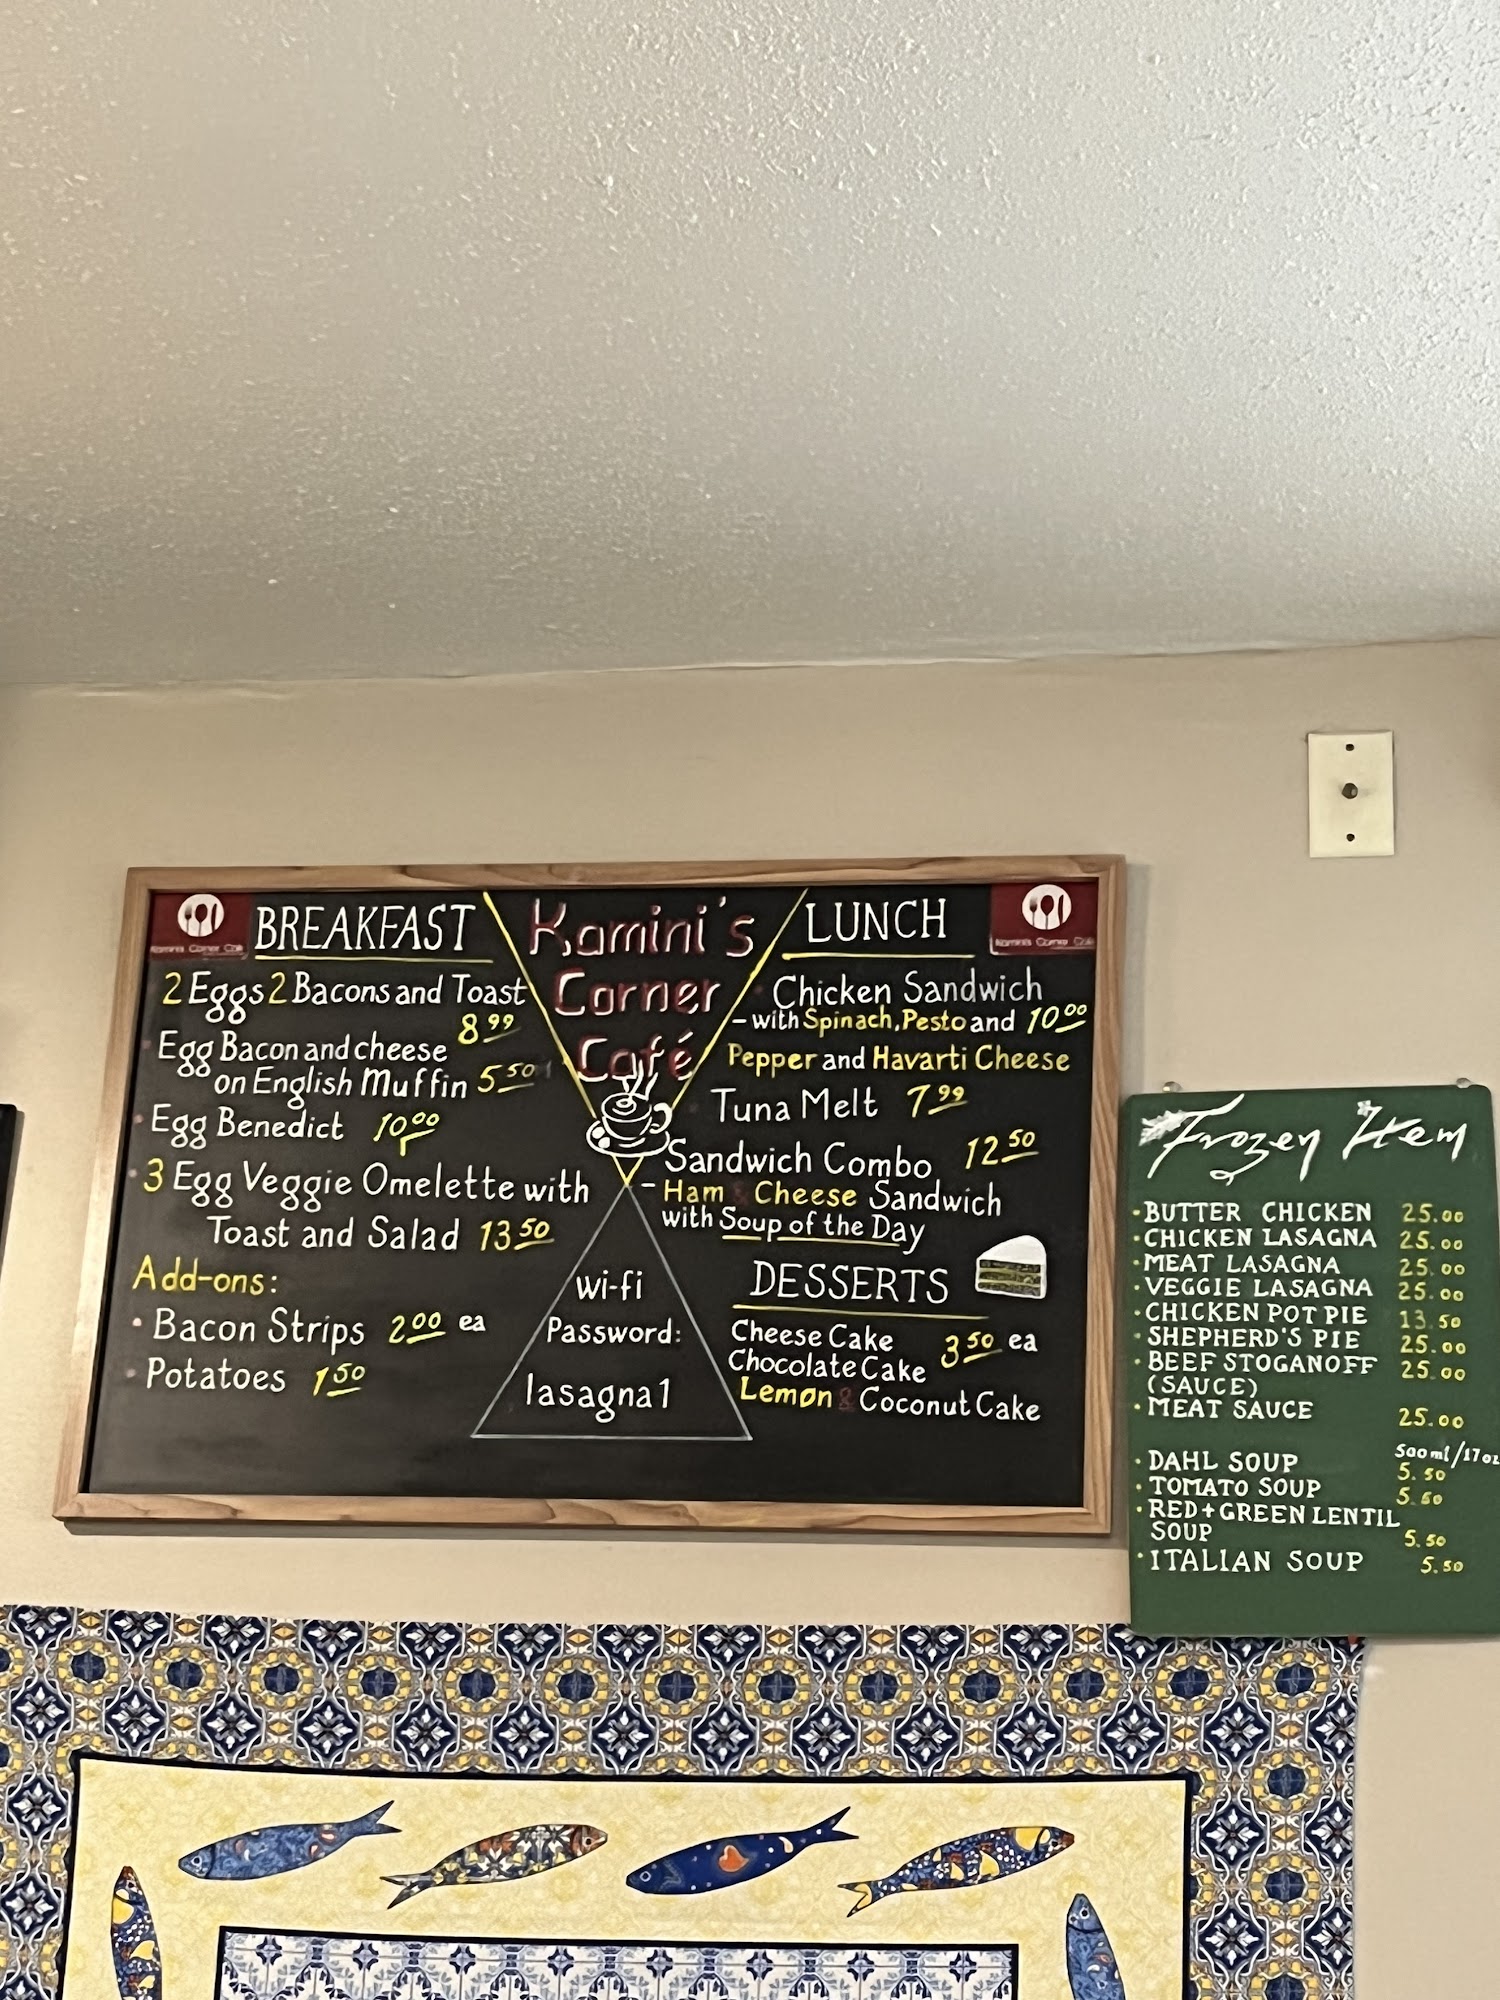 Kamini's Corner Café
BREAKFAST
2 Eggs 2 Bacons and Toast
8.99
Egg Bacon and cheese
on English Muffin 5.50
Egg Benedict 10.00
3 Egg Veggie Omelette with
Toast and Salad 13.50
Add-ons:
• Bacon Strips 2.00 ea
• Potatoes 1.50
Kamini's
Corner
Café
wi-fi
Password:
lasagna1
Kamini's Corner Café
LUNCH
Chicken Sandwich
- with Spinach, Pesto and 10.00
Pepper and Havarti Cheese
Tuna Melt 7.99
Sandwich Combo 12.50
- Ham & Cheese Sandwich
with Soup of the Day
DESSERTS
Cheese Cake
3.50 ea
Chocolate Cake
Lemon & Coconut Cake
Frozen Item
• BUTTER CHICKEN 25.00
• CHICKEN LASAGNA 25.00
• MEAT LASAGNA 25.00
• VEGGIE LASAGNA 25.00
• CHICKEN POT PIE 13.50
• SHEPHERD'S PIE 25.00
• BEEF STOGANOFF 25.00
(SAUCE)
• MEAT SAUCE 25.00
500ml/17oz
• DAHL SOUP 5.50
• TOMATO SOUP 5.50
• RED+GREEN LENTIL
SOUP 5.50
• ITALIAN SOUP 5.50